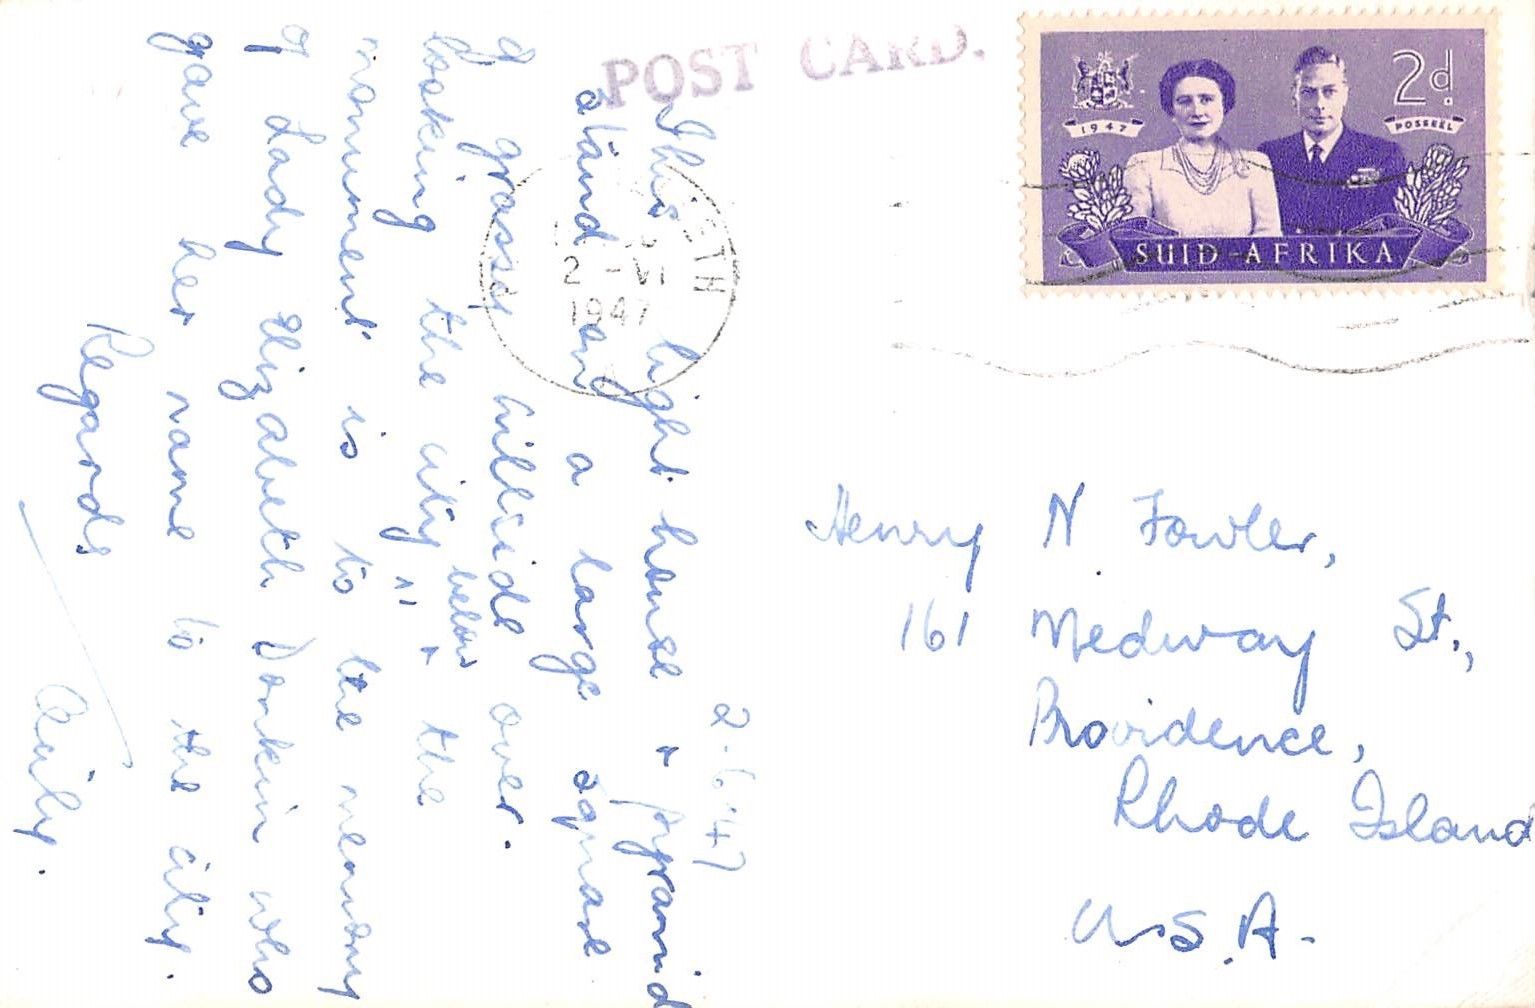 POST CARD.
1947
2d.
POSSEËL
SUID-AFRIKA
ETH
2 -VI
1947
2-6-'47
This light house + pyramid
stand in a large square
of grassy hillside over.
looking the city below + the
monument is to the memory
of Lady Elizabeth Donkin who
gave her name to the city.
Regards
Cicily.
Henry N. Fowler,
161 Medway St.,
Providence,
Rhode Island
U.S.A.